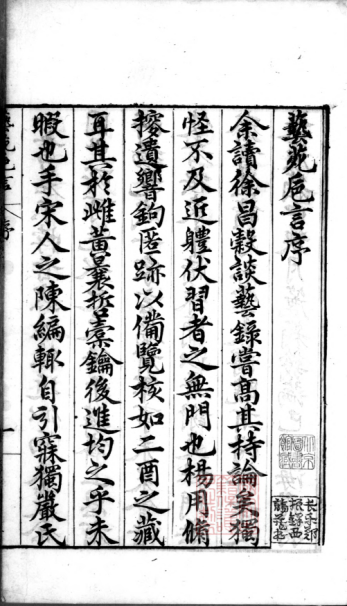 藝苑卮言序
余讀徐昌穀談藝錄嘗高其持論矣獨
怪不及近體伏習者之無門也楊用脩
搜遺響鉤匿跡以備覽核如二酉之藏
耳其於雌黃曩哲橐鑰後進均之乎未
暇也手宋人之陳編輒自引寐獨嚴氏
長樂鄭
振鐸西
諦藏書
序
一